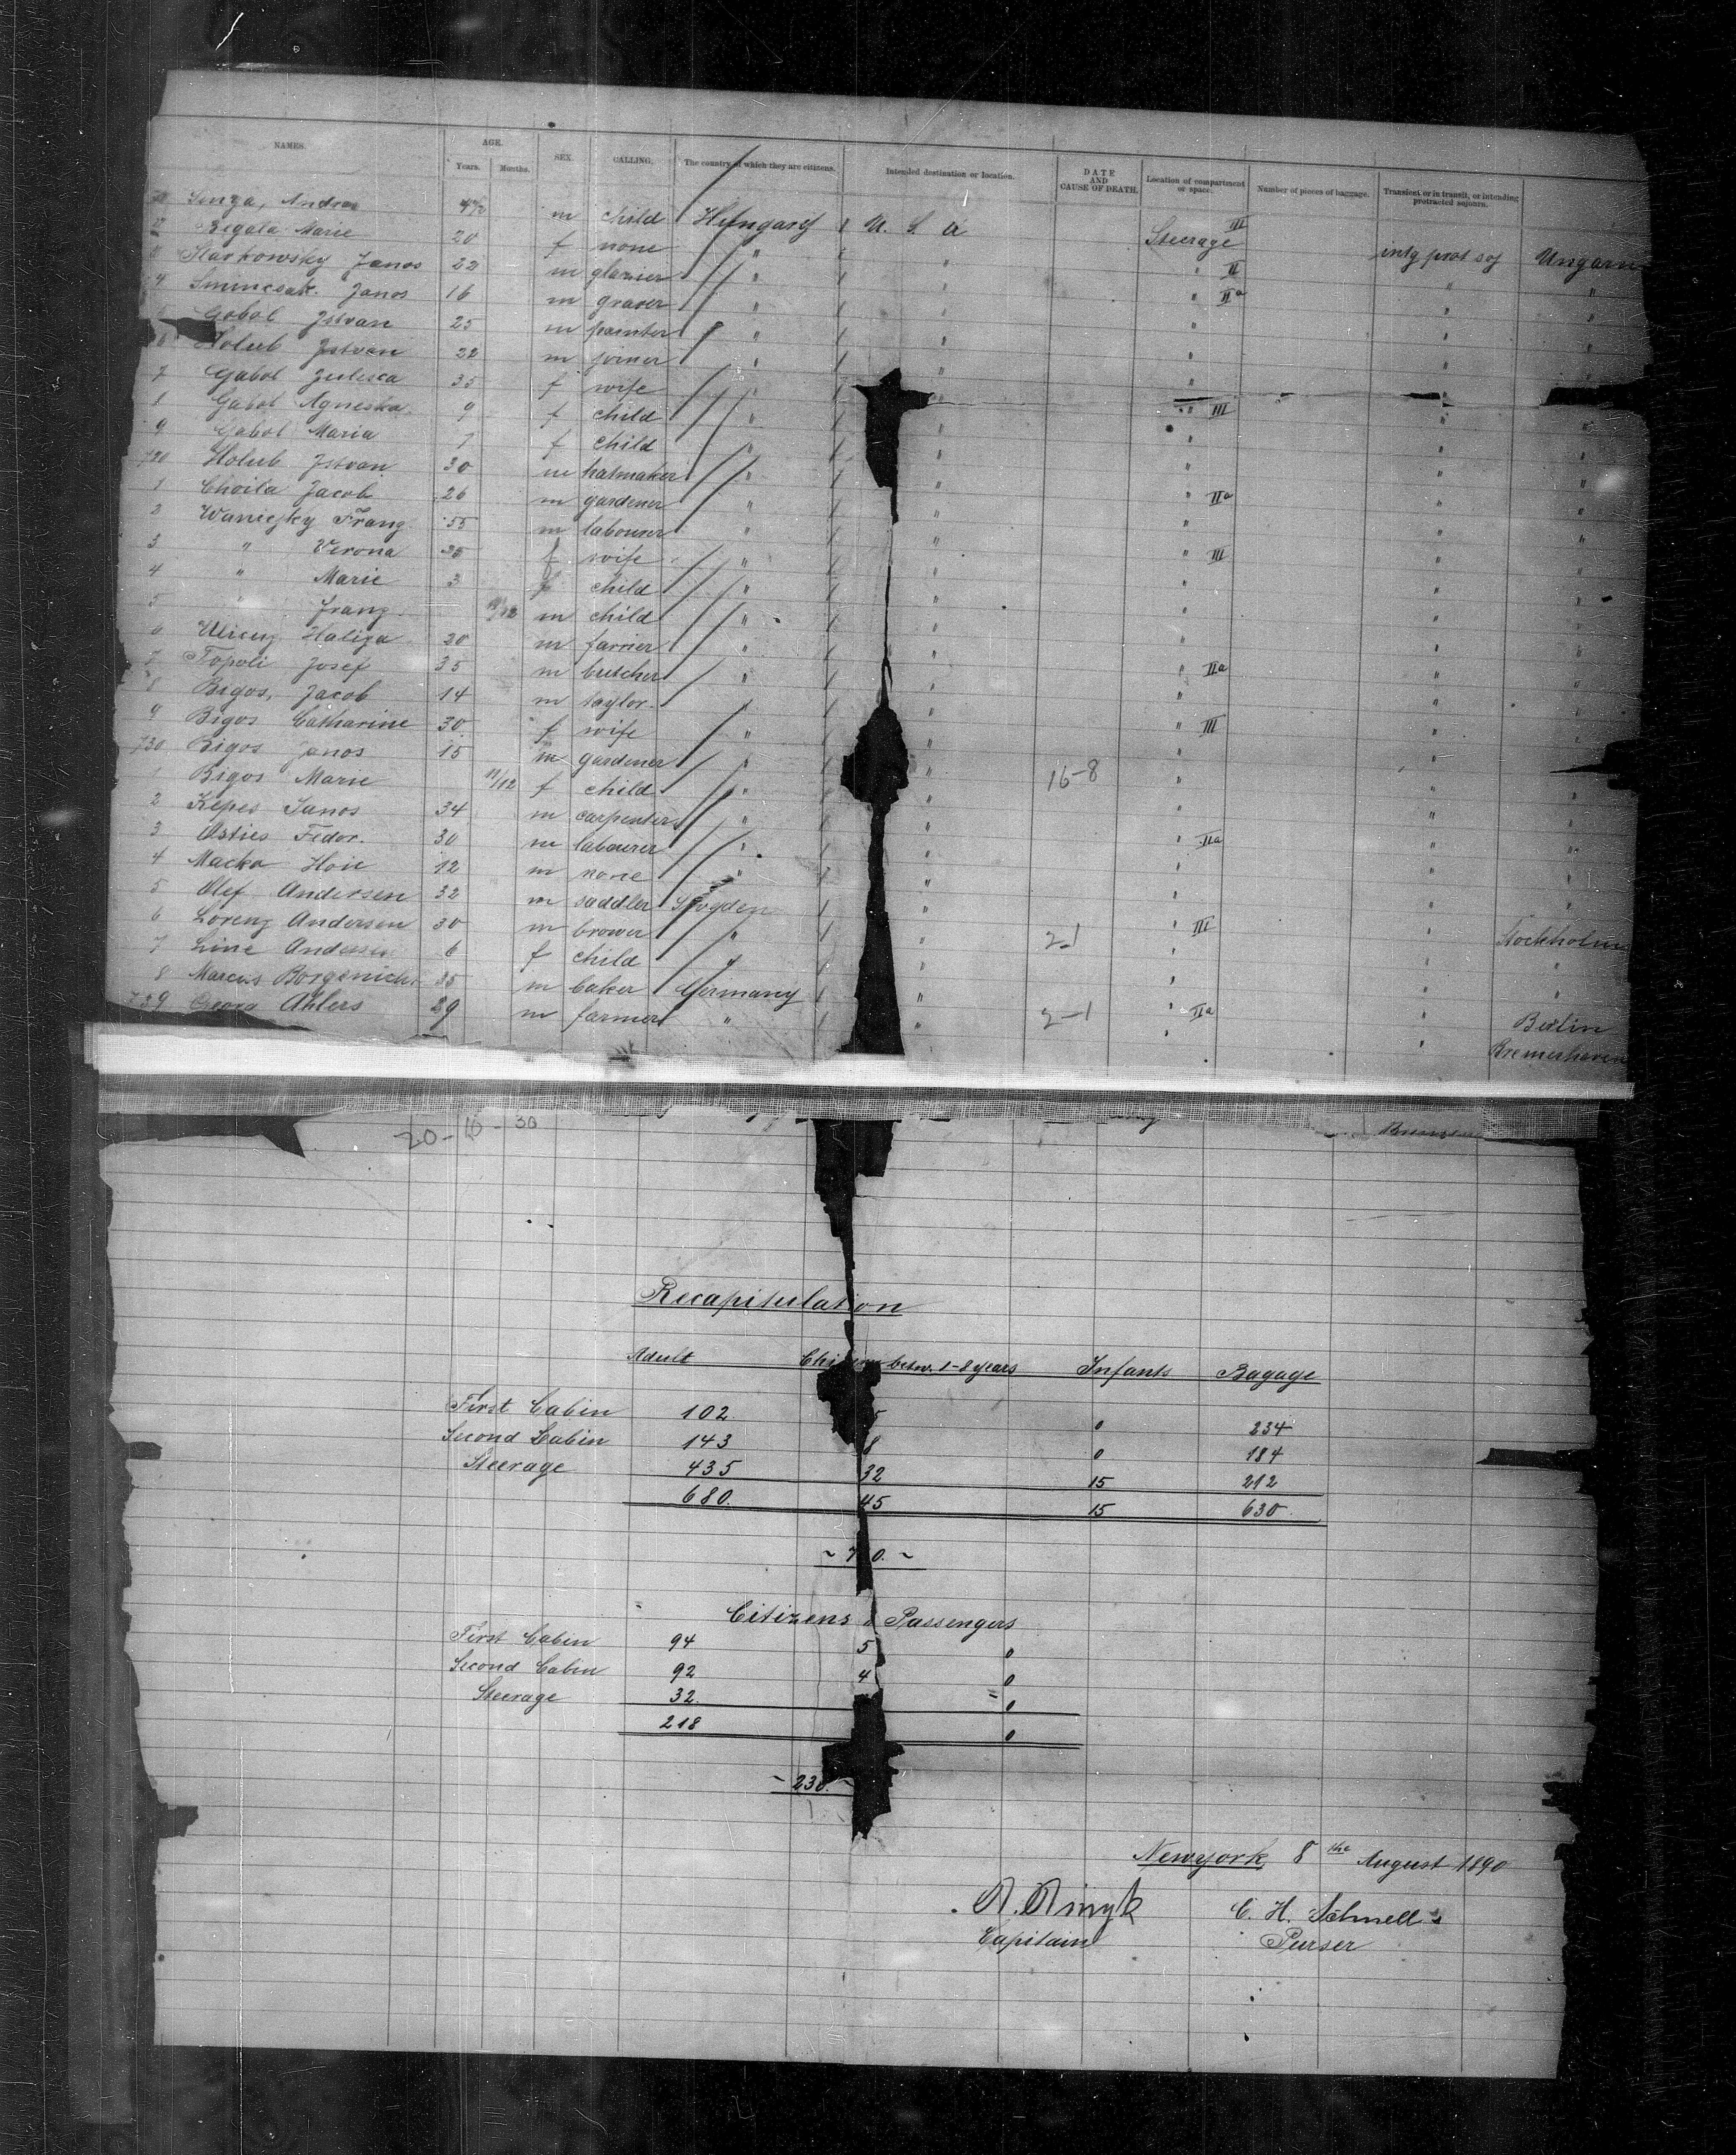 NAMES. AGE. Years. Months. SEX. CALLING. The country of which they are citizens. Intended destination or location. DATE AND CAUSE OF DEATH. Location of compartment or space. Number of pieces of baggage. Transient or in transit, or intending protracted sojourn.
Andras 4 m child Hungary U. S. A Steerage III intg prot soj Ungarn
Regata Marie 20 f none " " " II " "
Starkowsky Janos 22 m glazier " " " II a " "
4 Smincsak. Janos 16 m graver " " " " "
Gobol Jstvan 25 m painter " " " " "
6 Holub Jstvan 22 m joiner " " " " "
7 Gabol Julisca 35 f wife " " " III " "
Gabol Agneska 9 f child " " " " "
9 Gabol Maria 7 f child " " " " "
720 Holub Jstvan 30 m hatmaker " " " IIa " "
1 Choila Jacob 26 m gardener " " " " "
2 Franz 55 m labourer " " " III " "
3 " Verona 25 f wife " " " " "
4 " Marie 3 f child " " " " "
5 " Franz m child " " " " "
6 20 m farrier " " " IIa " "
7 Topoli Josef 35 m butcher " " " " "
8 Bigos, Jacob 14 m taylor " " " III " "
9 Bigos Catharine 30 f wife " " " " "
730 Bigos Janos 15 m gardener " " " " "
1 Bigos Marie 11/12 f child " " 16-8 " " "
2 Kepes Janos 34 m carpenter " " " IIa " "
3 Osties Fedor. 30 m labourer " " " " "
4 Macko 12 m none " " " " "
5 Olef Andersen 32 m saddler " " III " Stockholm
6 Lorenz Andersen 30 m brower " " 2-1 " " "
7 Line Andersen 6 f child " " " " "
8 Marcus 35 m baker Germany " " IIa " Berlin
739 Georg Ahlers 29 m farmer " " 2-1 " " Bremerhaven
20-10-30
Recapitulation
Adult betw. 1-8 years Infants Bagage
First Cabin 102 5 0 234
Second Cabin 143 8 0 184
Steerage 435 32 15 212
680. 45 15 630.
~ 7 0. ~
Citizens Passengers
First Cabin 94 5 0
Second Cabin 92 4 0
Steerage 32. 0
218 0
~ 230. ~
Newyork 8 the August 1890
C. H. Schnell
Capitain Purser